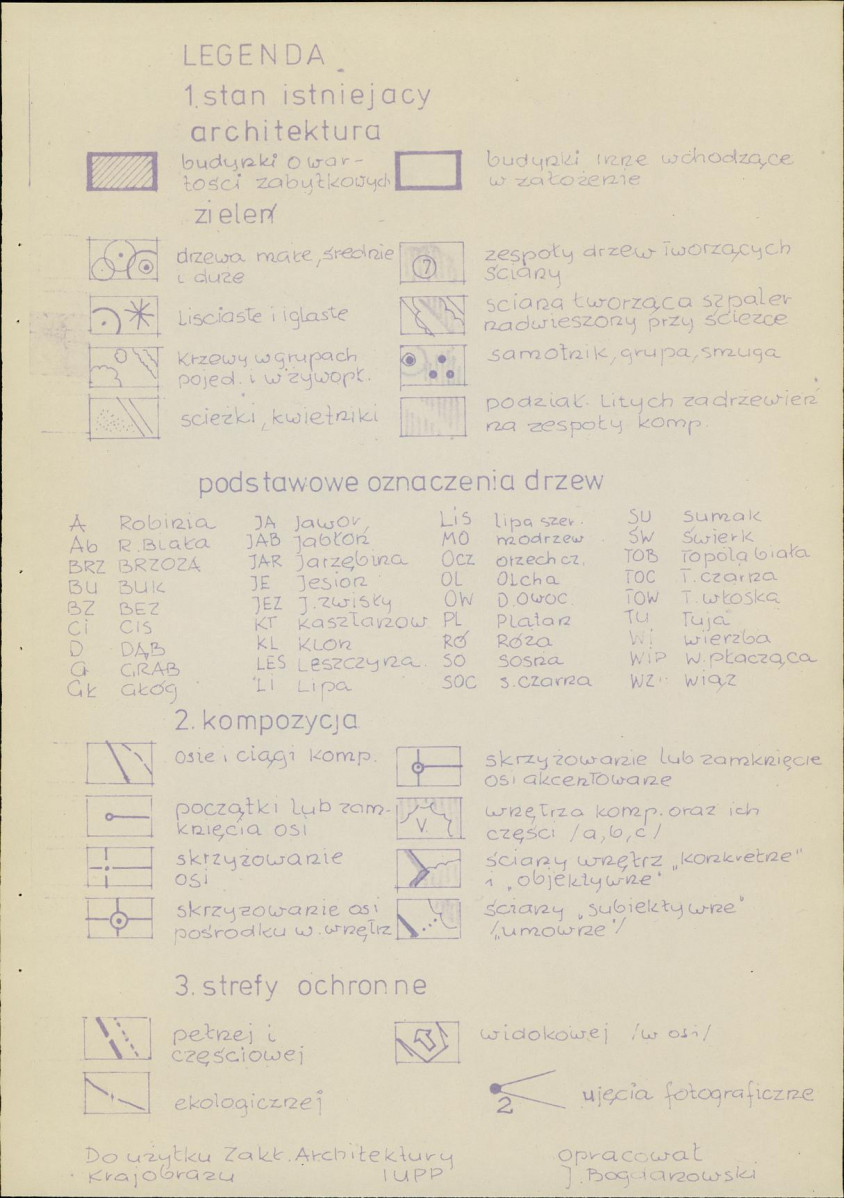 LEGENDA
1. stan istniejacy
architektura
budynki o war-
tości zabytkowych
budynki inne wchodzące
w założenie
zieleń
drzewa małe, średnie
i duże
zespoły drzew tworzących
ściany
Liściaste i iglaste
sciana tworząca szpaler
nadwieszony przy ścieżce
krzewy w grupach
pojed. i w żywopł.
samotnik, grupa, smuga
ścieżki, kwietniki
podział litych zadrzewień
na zespoły komp.
podstawowe oznaczenia drzew
A Robinia
Ab R. Biała
BRZ BRZOZA
BU BUK
BZ BEZ
Ci CIS
D DĄB
G GRAB
GŁ GŁÓG
JA Jawor
JAB Jabłoń
JAR Jarzębina
JE Jesion
JEZ J. zwisły
KT Kasztanow.
KL KLON
LES Leszczyna.
LI Lipa
LiS lipa szer.
MO modrzew
OCZ orzech cz.
OL OLcha
OW D. owoc.
PL Platan
RÓ Róża
SO sosna
SOC s. czarna
SU sumak
ŚW świerk
TOB Topola biała
TOC T. czarna
TOW T. włoska
TU Tuja
Wi wierzba
WIP W. płacząca
WZ wiąz
2. kompozycja
osie i ciągi komp.
skrzyżowanie lub zamknięcie
osi akcentowane
początki lub zam-
knięcia osi
wnętrza komp. oraz ich
części /a, b, c/
skrzyżowanie
osi
ściany wnętrz „konkretne"
i „objektywne"
skrzyżowanie osi
pośrodku w. wnętrz
ściany „subiektywne"
/„umowne"/
V
3. strefy ochronne
pełnej i
częściowej
widokowej /w osi/
ekologicznej
2
ujęcia fotograficzne
Do użytku Zakł. Architektury
Krajobrazu IUPP
opracował
J. Bogdanowski